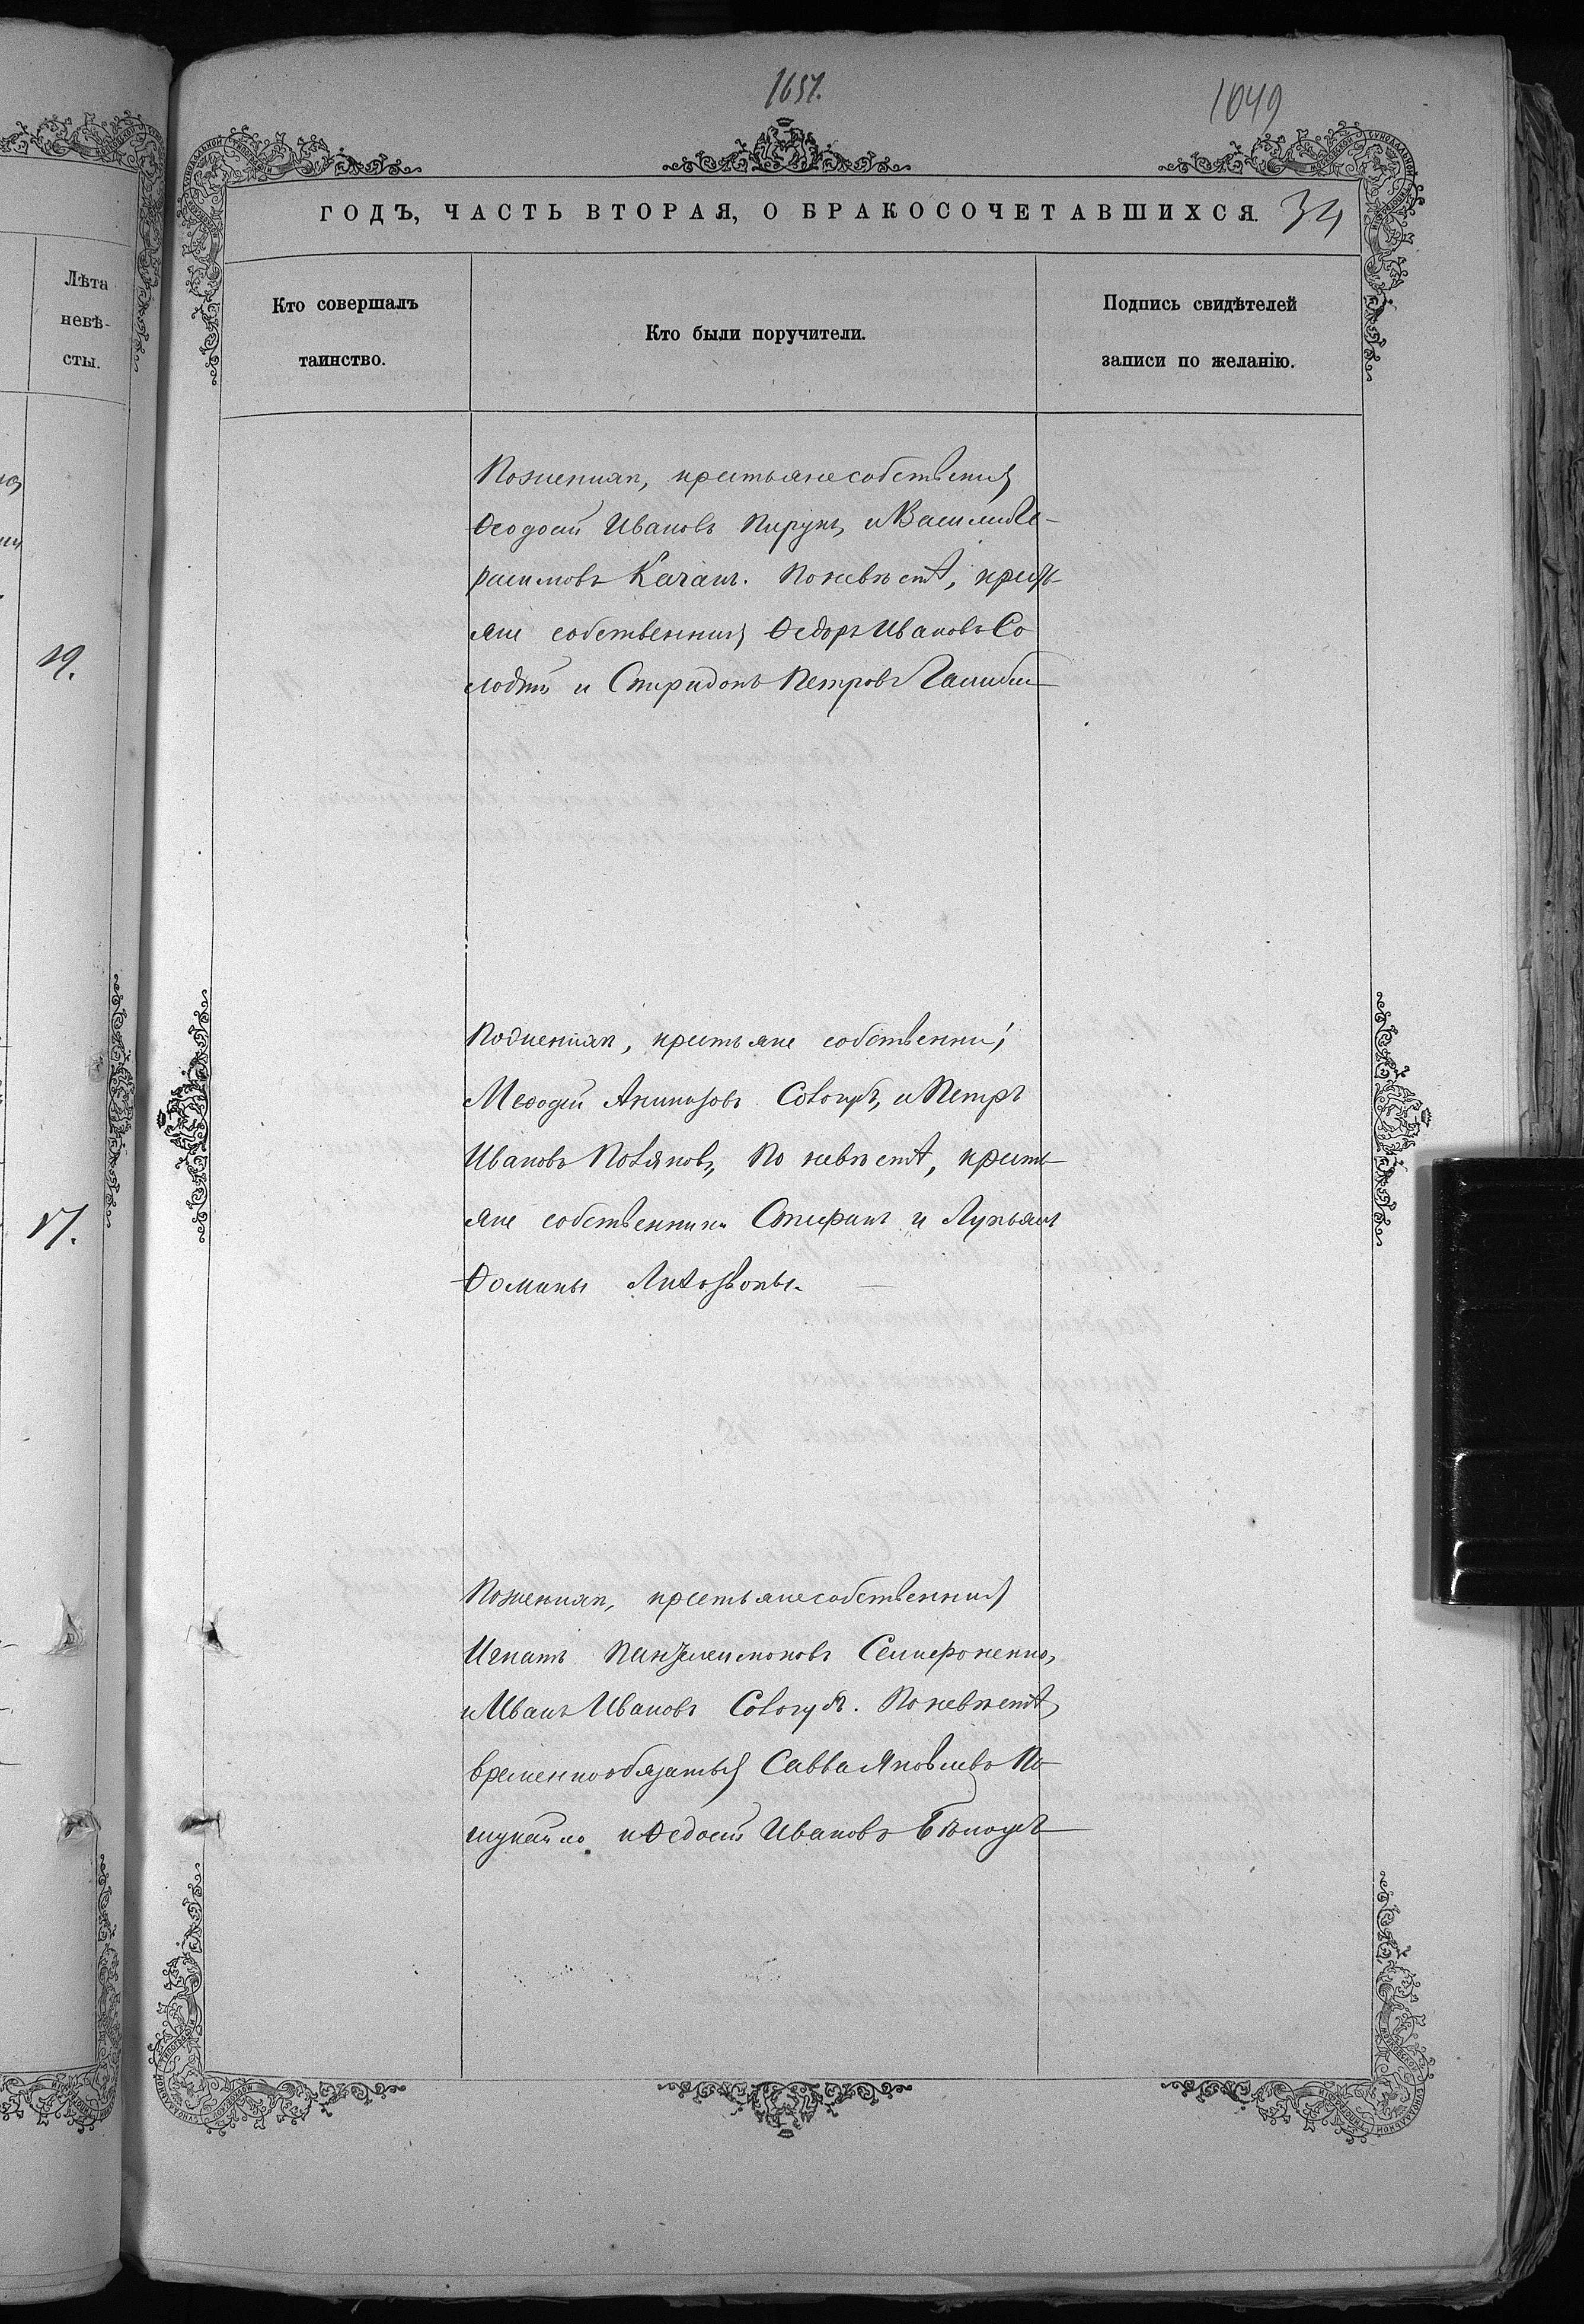 1657.
1049
ГОДЪ, ЧАСТЬ ВТОРАЯ, О БРАКОСОЧЕТАВШИХСЯ. 34
Лѣта
невѣ-
сты.
Кто совершалъ
таинство.
Кто были поручители.
Подпись свидѣтелей
записи по желанію.
19.
17.
По женихѣ, крестьяне собствении
Ѳеодосій Ивановъ и Василій Ге-
расимовъ Качанъ. По невѣстѣ, кресть-
яне собственники Ѳедоръ Ивановъ Со
лодкій и Спиридонъ Петровъ
По женихѣ, крестьяне собственни
Меѳодій Сологубъ, и Петръ
Ивановъ По невѣстѣ, кресть-
яне собственники Стефанъ и Лукьянъ
Ѳомины
По женихѣ, крестьяне собственники
Игнатъ Пантелеимоновъ
и Иванъ Ивановъ Сологубъ. По невѣстѣ,
временнообязаные Савва Яковлевъ По
шукайло и Ѳедосій Ивановъ